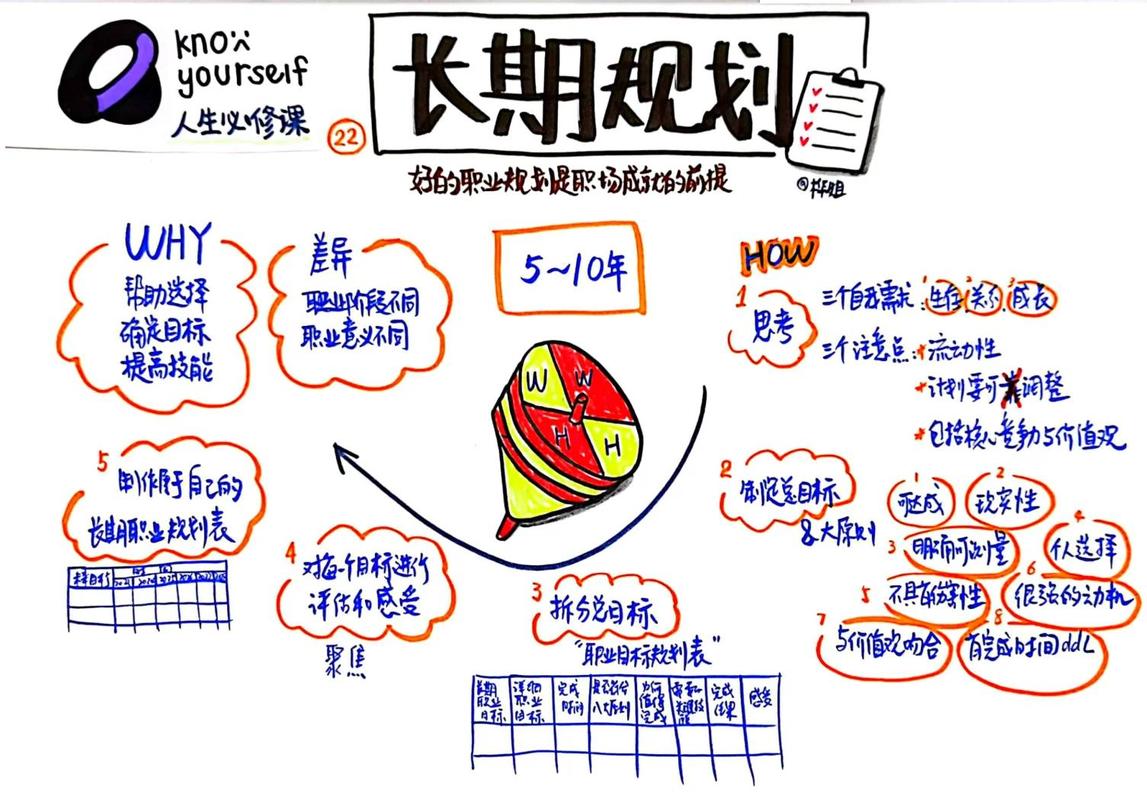 know
yourself
人生必修课
22
长期规划
好的职业规划是职场成就的前提
WHY
帮助选择
确定目标
提高技能
差异
职业阶段不同
职业意义不同
5~10年
HOW
1
思考
三个自我需求:1生存 2关系 3成长
三个注意点:*流动性
*计划要可调整
*包括核心竞争力与价值观
W W
H H
2
制定总目标
8大原则
1 可达成
2 现实性
3 明确可计量
4 个人选择
5 不具破坏性
6 很强的动机
7 与价值观吻合
8 有完成时间ddL
3
拆分总目标
"职业目标规划表"
长期职业目标 详细职业目标 完成时间 是否符合八大原则 为何值得完成 需要的关键技能 完成结果 感受
4
对每个目标进行
评估和感受
聚焦
5
制作属于自己的
长期职业规划表